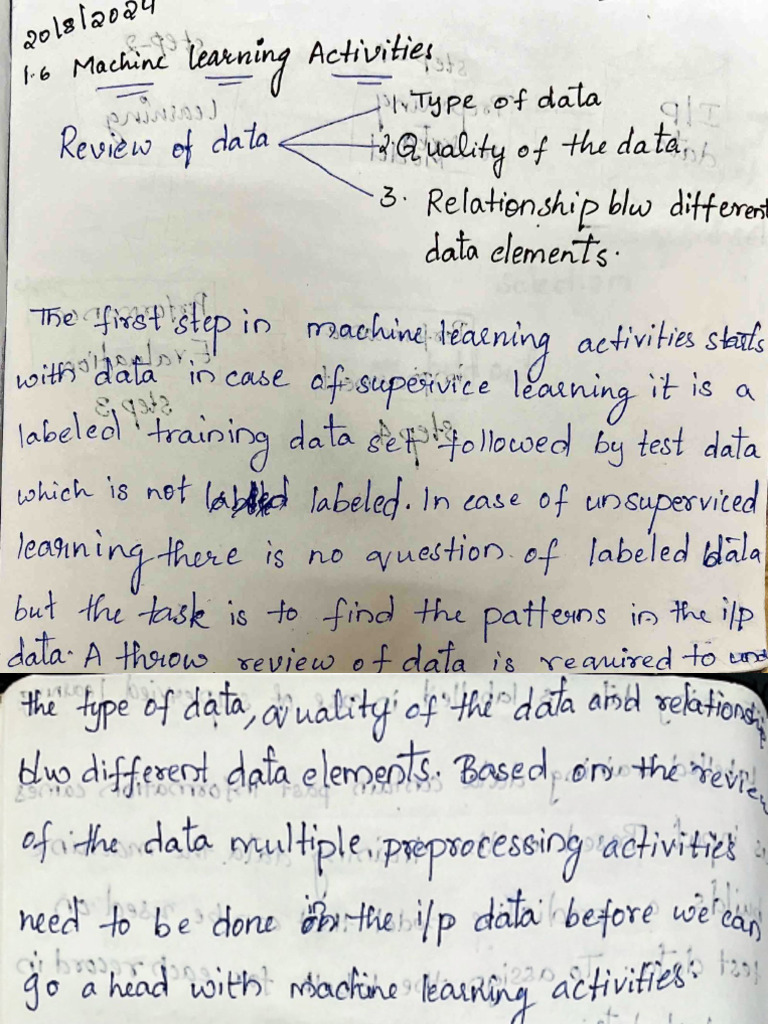 20/8/2024
1.6 Machine learning Activities
Review of data
1. Type of data
2. Quality of the data
3. Relationship b/w different
data elements.
The first step in machine learning activities starts
with data in case of supervice learning it is a
labeled training data set followed by test data
which is not labeled. In case of unsuperviced
learning there is no question of labeled data
but the task is to find the patterns in the i/p
data. A throw review of data is required to
the type of data, quality of the data and relationship
b/w different data elements. Based on the review
of the data multiple preprocessing activities
need to be done on the i/p data before we can
go a head with machine learning activities.